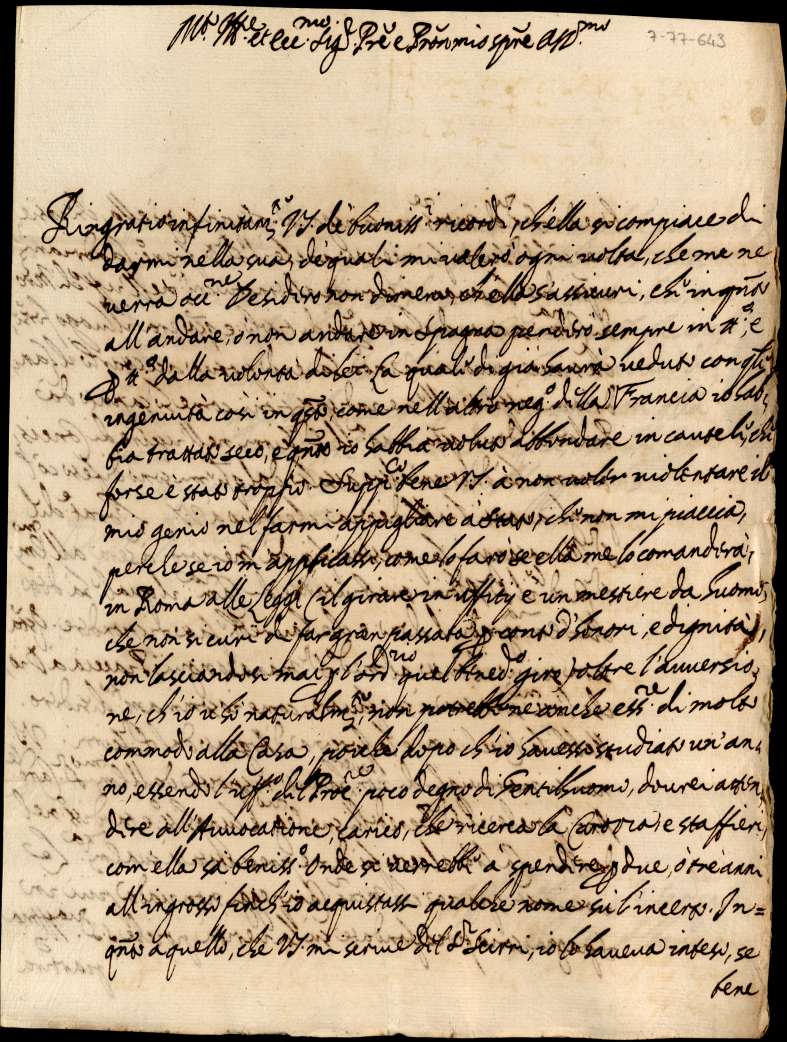 Mto Illre et Ecc.mo Sig.r Prẽ e Prõn mio sprẽ oss.mo
7-77-643
Ringratio infinitam.te VS. de' buoniss.i ricordi, ch'ella si compiace di
darmi nella sua, de' quali mi valerò ogni volta, che me ne
verrà occ.ne Desidero non dimeno, ch'ella s'assicuri, che in q̃nto
all'andare, ò non andare in Spagna penderò sempre in tt.o, e
p tt.o dalla volontà di lei. La quale di già haurà veduto con q̃lla
ingenuità così in q̃sto, come nell'altro neg.o della Francia io hab=
bia trattato seco, e q̃nto io habbia voluto abbondare in cautele, che
forse è stato troppo. Supp.co bene VS. à non voler violentare il
mio genio nel farmi appigliare à stato, che non mi piaccia,
perche se io m'applicassi, come lo farò se ella me lo comanderà,
in Roma alle leggi (il girare in uffitij è un mestiere da huomo,
che non si curi di far gran passata p conto d'honori, e dignità,
non lasciandosi mai p l'ord.rio quel bened.o gire) oltre l'avversio=
ne, ch'io ci hò naturalm.te, non potrebbe nè anche ess.re di molto
commodo alla Casa, poiche dopo ch'io havessi studiato un'an=
no, essendo l'uff.o del Proc.re poco degno di Gentilhuomo, dovrei atten=
dere all'Avvocatione, carico, che ricerca la Carozza, e staffieri,
com'ella sà beniss.o Onde si verrebbe à spendere p due, ò trè anni
all'ingrosso finch'io acquistassi qualche nome sù l'incerto. In=
q̃nto à quello, che VS. mi scrive del S.r Scirri, io lo haveva inteso, se
bene